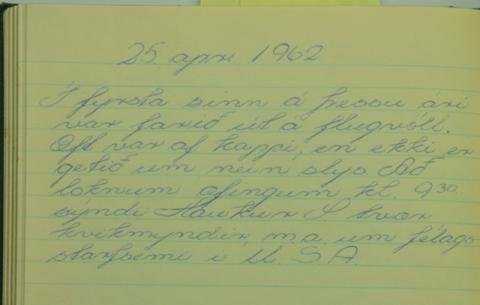 25. apr. 1962
Í fyrsta sinn á þessu ári
var farið út á flugvöll.
Ekt var af kappi, en ekki er
getið um nein slys. Að
loknum æfingum kl. 9³⁰
sýndi Haukur S tvær
kvikmyndir, m.a. um félags
starfsemi í U.S.A.